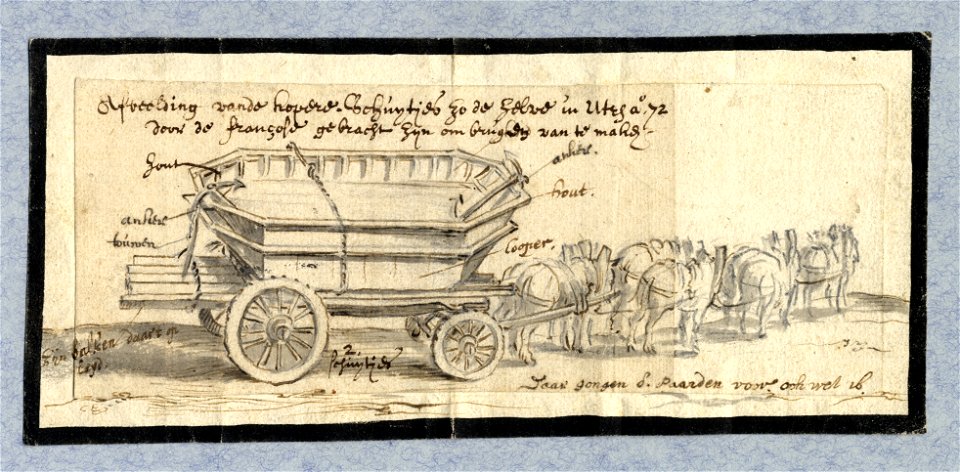 Afbeelding vande kopere Schuytjes zo de selve in Utrs aº. 72
door de françose gebracht zijn om bruggen van te maken
hout
anker.
hout.
anker
touwen
Cooper.
zijn balken daar op
legd
2
schuytjes
Daar gongen d. Paarden voor ook wel 16